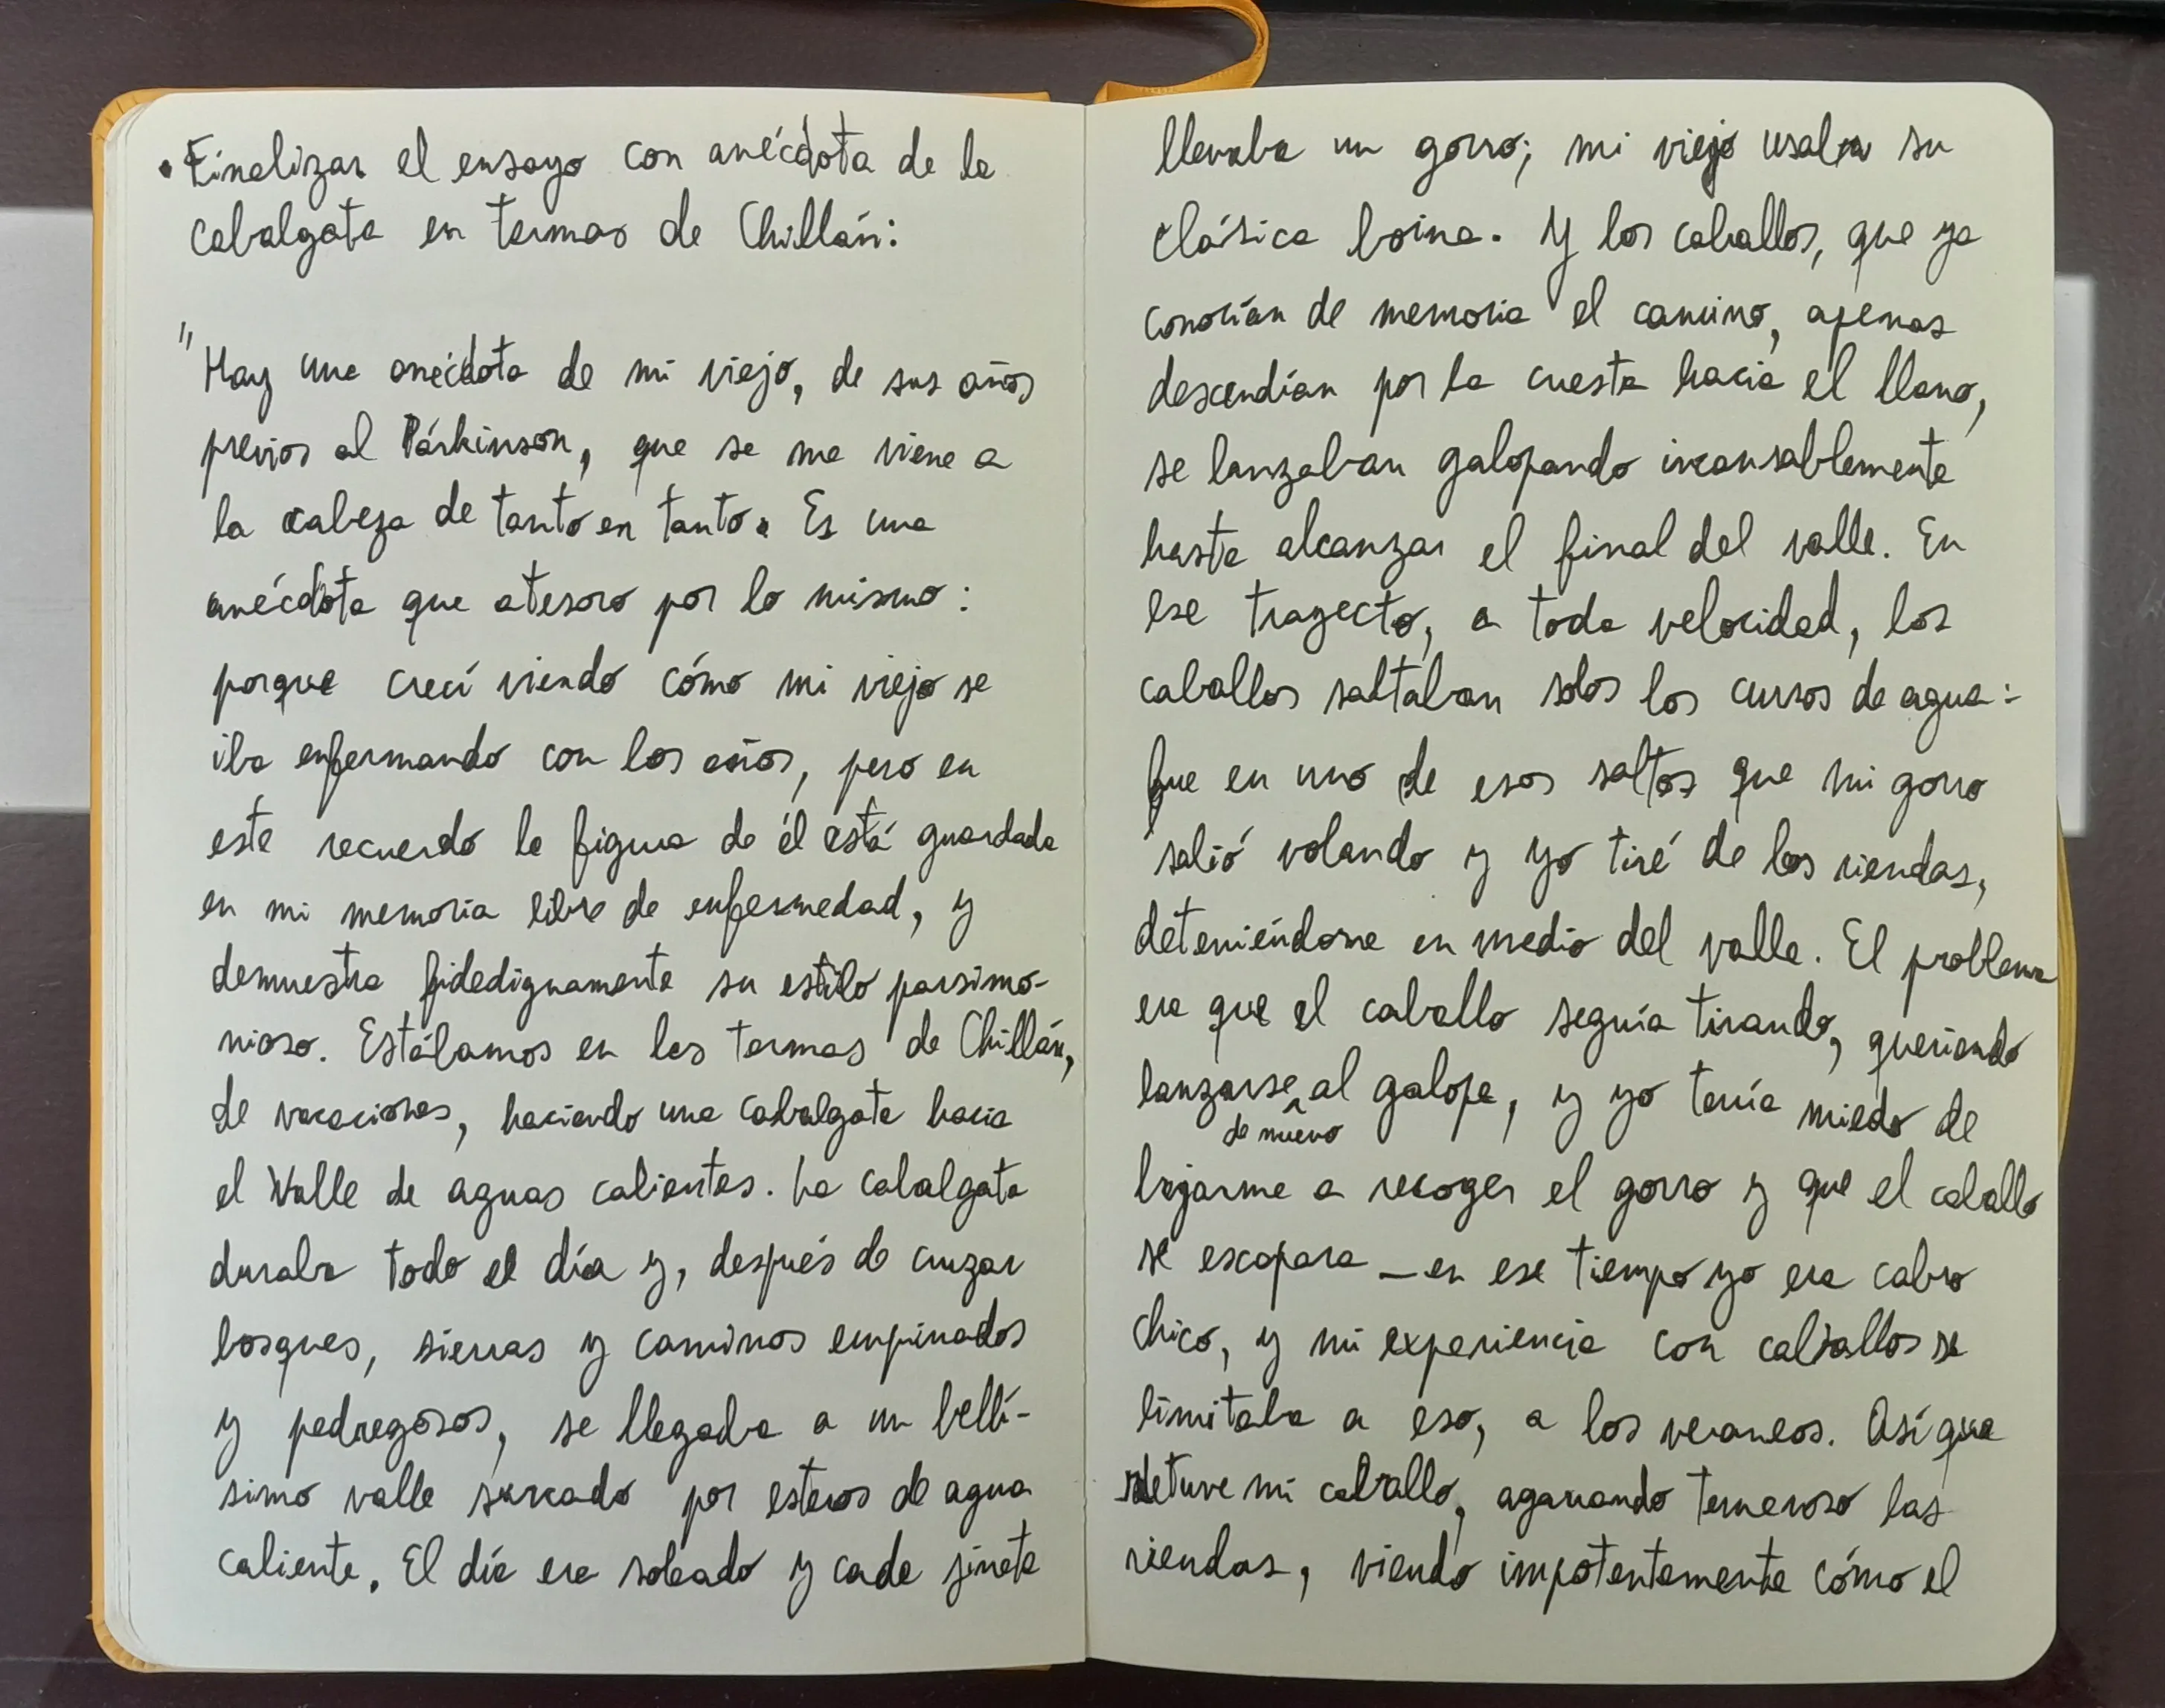 • Finalizar el ensayo con anécdota de la
cabalgata en termas de Chillán:
"Hay una anécdota de mi viejo, de sus años
previos al Párkinson, que se me viene a
la cabeza de tanto en tanto. Es una
anécdota que atesoro por lo mismo:
porque crecí viendo cómo mi viejo se
iba enfermando con los años, pero en
este recuerdo la figura de él está guardada
en mi memoria libre de enfermedad, y
demuestra fidedignamente su estilo parsimo-
nioso. Estábamos en las termas de Chillán,
de vacaciones, haciendo una cabalgata hacia
el Valle de aguas calientes. La cabalgata
duraba todo el día y, después de cruzar
bosques, sierras y caminos empinados
y pedregosos, se llegaba a un bellí-
simo valle surcado por esteros de agua
caliente. El día era soleado y cada jinete
llevaba un gorro; mi viejo usaba su
clásica boina. Y los caballos, que ya
conocían de memoria el camino, apenas
descendían por la cuesta hacia el llano,
se lanzaban galopando incansablemente
hasta alcanzar el final del valle. En
ese trayecto, a toda velocidad, los
caballos saltaban solos los cursos de agua:
fue en uno de esos saltos que mi gorro
salió volando y yo tiré de las riendas,
deteniéndome en medio del valle. El problema
era que el caballo seguía tirando, queriendo
lanzarse de nuevo al galope, y yo tenía miedo de
bajarme a recoger el gorro y que el caballo
se escapara —en ese tiempo yo era cabro
chico, y mi experiencia con caballos se
limitaba a eso, a los veraneos. Así que
detuve mi caballo, agarrando temeroso las
riendas, viendo impotentemente cómo el